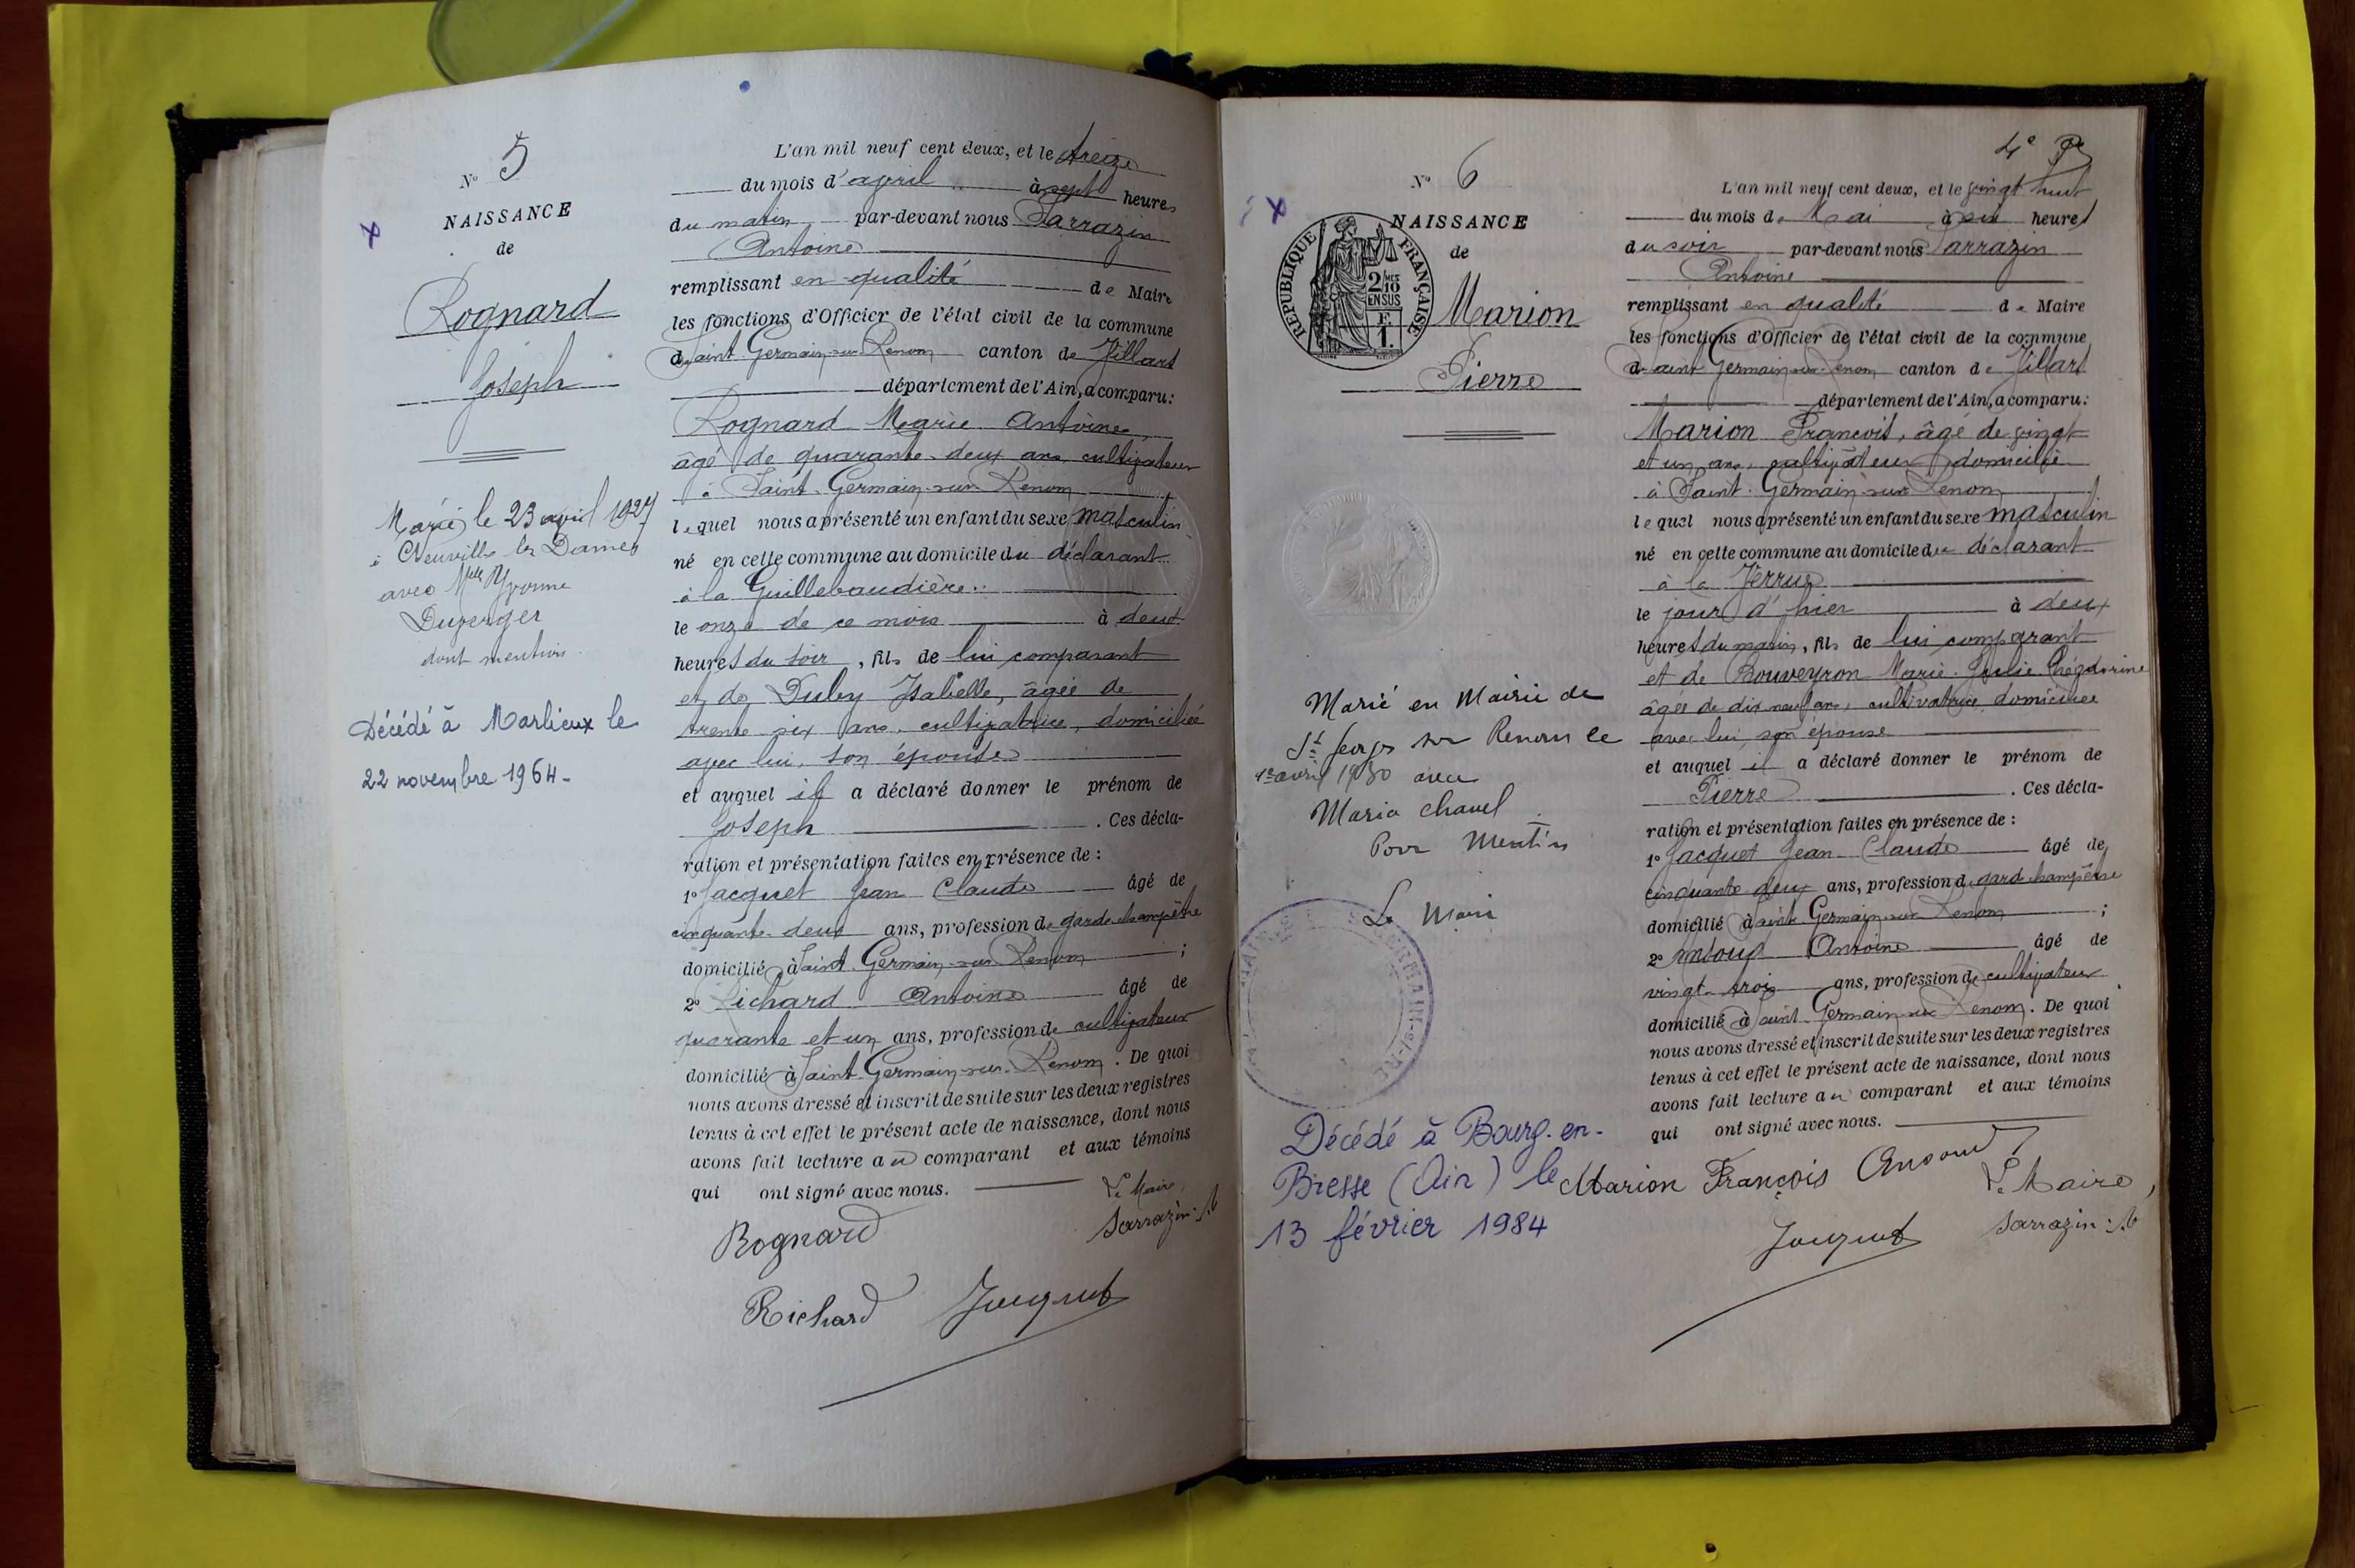 N° 5
NAISSANCE
de
Rognard
Joseph
Marié le 23 avril 1927
à Neuville les Dames
avec Mlle Yvonne
Duverger
dont mention
Décédé à Marlieux le
22 novembre 1964-
L'an mil neuf cent deux, et le treize
du mois d'avril à sept heures
du matin par-devant nous Sarrazin
Antoine
remplissant en qualité de Maire
les fonctions d'Officier de l'état civil de la commune
de Saint Germain-sur-Renom canton de Villars
département de l'Ain, a comparu:
Rognard Marie Antoine,
âgé de quarante-deux ans, cultivateur
à Saint-Germain-sur-Renom
lequel nous a présenté un enfant du sexe masculin
né en cette commune au domicile du déclarant
à la Guillebaudière
le onze de ce mois à deux
heures du soir, fils de lui comparant
et de Duby Isabelle, âgée de
trente six ans, cultivatrice, domiciliée
avec lui, son épouse
et auquel il a déclaré donner le prénom de
Joseph . Ces décla-
ration et présentation faites en présence de :
1° Jacquet Jean Claude âgé de
cinquante-deux ans, profession de garde champêtre
domicilié à Saint-Germain-sur-Renom ;
2° Richard Antoine âgé de
quarante et un ans, profession de cultivateur
domicilié à Saint-Germain-sur-Renom. De quoi
nous avons dressé et inscrit de suite sur les deux registres
tenus à cet effet le présent acte de naissance, dont nous
avons fait lecture au comparant et aux témoins
qui ont signé avec nous.
Le Maire,
Rognard Sarrazin
Richard Jacquet
4e
N° 6
NAISSANCE
de
REPUBLIQUE FRANÇAISE
2/10
EN SUS
F.
1.
Marion
Pierre
Marié en Mairie de
St Georges sur Renon le
1er avril 1930 avec
Maria Chanel
Pour Mention
Le Maire
Décédé à Bourg-en-
Bresse (Ain) le
13 février 1984
L'an mil neuf cent deux, et le vingt huit
du mois de Mai à six heures
du soir par-devant nous Sarrazin
Antoine
remplissant en qualité de Maire
les fonctions d'Officier de l'état civil de la commune
de Saint Germain-sur-Renom canton de Villars
département de l'Ain, a comparu:
Marion François, âgé de vingt
et un ans, cultivateur domicilié
à Saint-Germain-sur-Renom
lequel nous a présenté un enfant du sexe masculin
né en cette commune au domicile du déclarant
à la Verrue
le jour d'hier à deux
heures du matin, fils de lui comparant
et de Bouveyron Marie Julie
âgée de dix neuf ans, cultivatrice domiciliée
avec lui, son épouse
et auquel il a déclaré donner le prénom de
Pierre . Ces décla-
ration et présentation faites en présence de :
1° Jacquet Jean-Claude âgé de
cinquante deux ans, profession de garde champêtre
domicilié à Saint Germain-sur-Renom ;
2° Antoine âgé de
vingt-trois ans, profession de cultivateur
domicilié à Saint-Germain-sur-Renom. De quoi
nous avons dressé et inscrit de suite sur les deux registres
tenus à cet effet le présent acte de naissance, dont nous
avons fait lecture au comparant et aux témoins
qui ont signé avec nous.
Marion François
Le Maire,
Jacquet Sarrazin